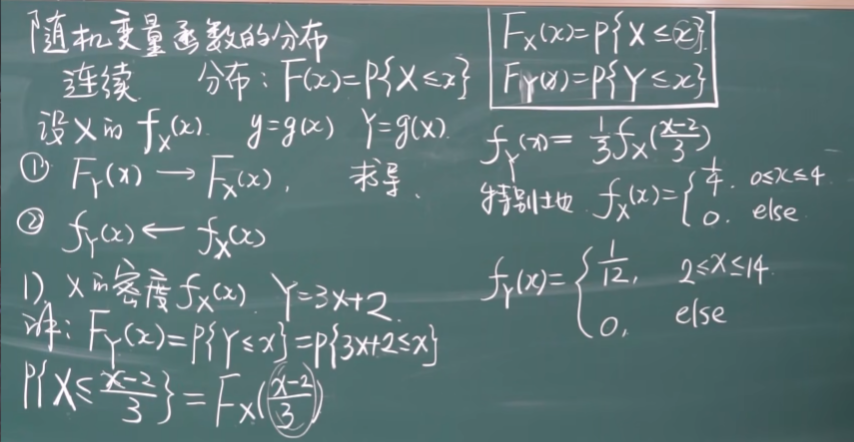 随机变量函数的分布
连续 分布：F(x)=P{X≤x}
设X的 f_X(x). y=g(x) Y=g(X).
① F_Y(x) → F_X(x), 求导、
② f_Y(x) ← f_X(x)
1). X的密度 f_X(x). Y=3X+2.
解：F_Y(x)=P{Y≤x}=P{3X+2≤x}
P{X≤\frac{x-2}{3}}=F_X(\frac{x-2}{3})
F_X(x)=P{X≤x}.
F_Y(x)=P{Y≤x}
f_Y(x)=\frac{1}{3}f_X(\frac{x-2}{3})
特别地 f_X(x)={\frac{1}{4}. 0≤x≤4
0. else
f_Y(x)={\frac{1}{12}, 2≤x≤14.
0, else